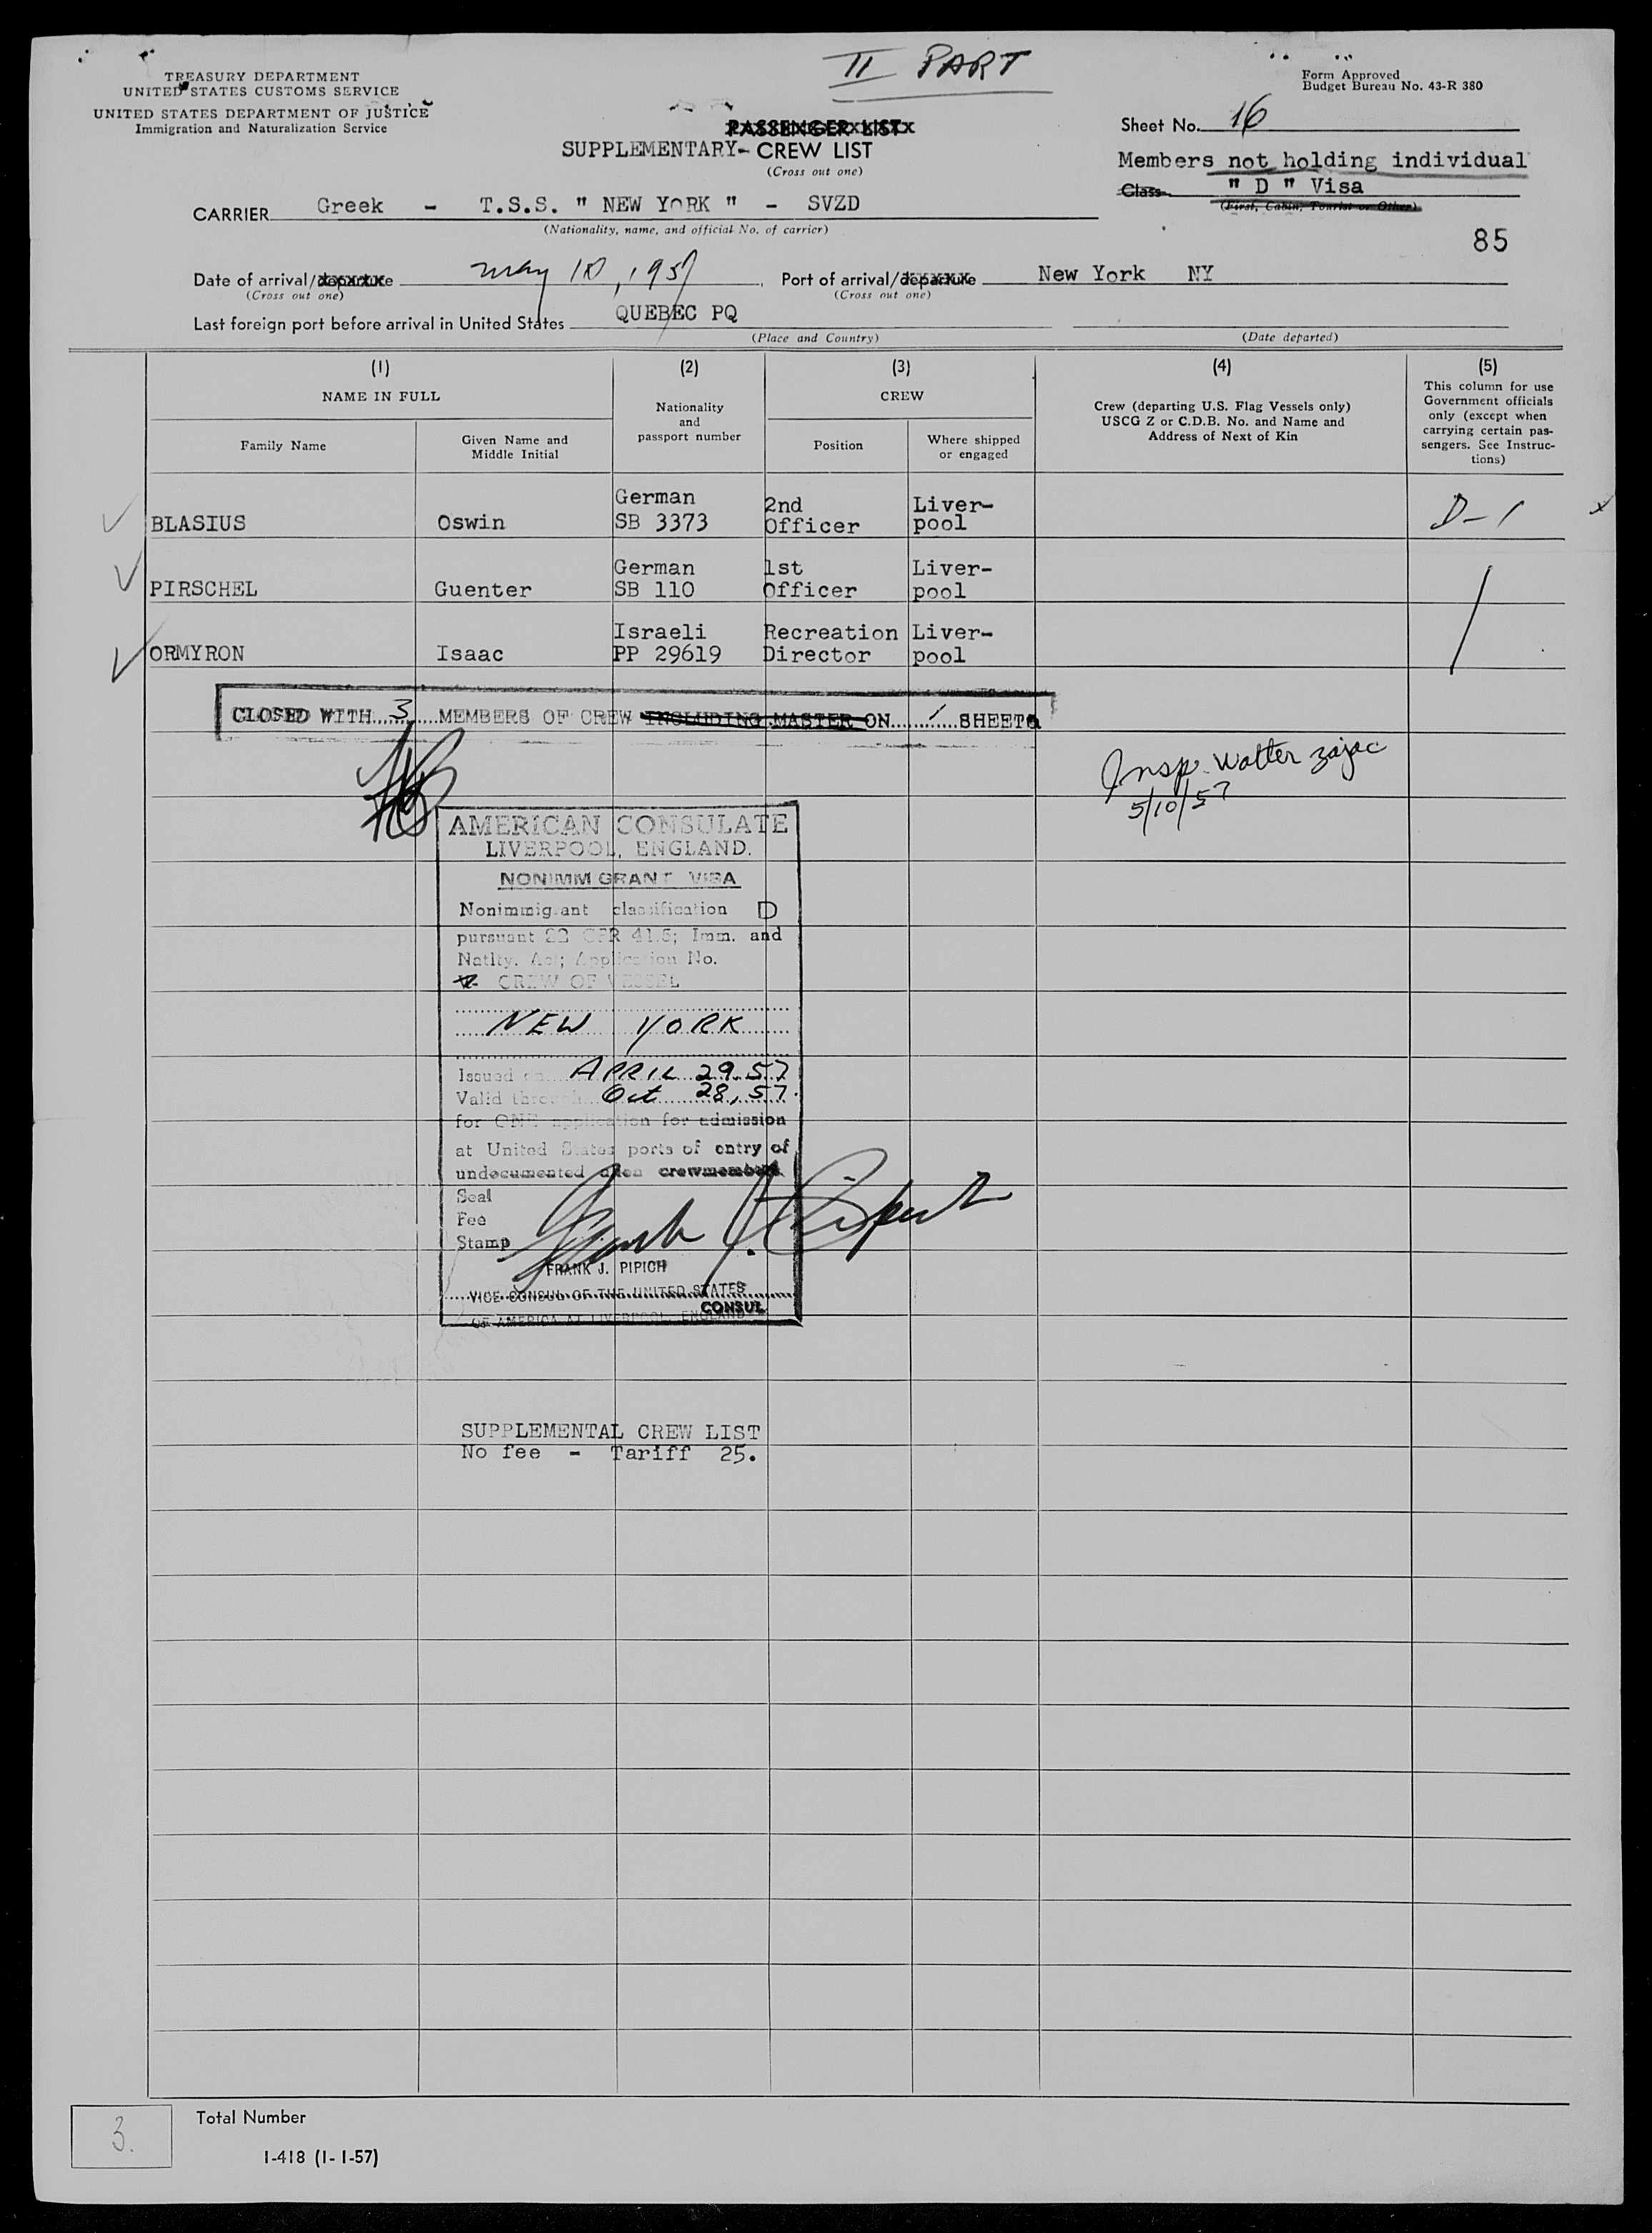 II PART
TREASURY DEPARTMENT
UNITED STATES CUSTOMS SERVICE
UNITED STATES DEPARTMENT OF JUSTICE
Immigration and Naturalization Service
Form Approved
Budget Bureau No. 43-R 380
PASSENGER LIST
SUPPLEMENTARY- CREW LIST
(Cross out one)
Sheet No. 16
Members not holding individual
Class " D " Visa
(First, Cabin, Tourist or Other)
CARRIER Greek - T.S.S. " NEW YORK " - SVZD
(Nationality, name, and official No. of carrier)
85
Date of arrival/departure May 10, 1957 Port of arrival/departure New York NY
(Cross out one) (Cross out one)
Last foreign port before arrival in United States QUEBEC PQ
(Place and Country) (Date departed)
(1) (2) (3) (4) (5)
NAME IN FULL
Family Name
Given Name and
Middle Initial
Nationality
and
passport number
CREW
Position
Where shipped
or engaged
Crew (departing U.S. Flag Vessels only)
USCG Z or C.D.B. No. and Name and
Address of Next of Kin
This column for use
Government officials
only (except when
carrying certain pas-
sengers. See Instruc-
tions)
German 2nd Liver-
BLASIUS Oswin SB 3373 Officer pool D-1 x
German 1st Liver-
PIRSCHEL Guenter SB 110 Officer pool
Israeli Recreation Liver-
ORMYRON Isaac PP 29619 Director pool
CLOSED WITH 3 MEMBERS OF CREW INCLUDING MASTER ON 1 SHEET
Insp. Walter Zajac
5/10/57
AMERICAN CONSULATE
LIVERPOOL, ENGLAND.
NONIMMIGRANT VISA
Nonimmigrant classification D
pursuant 22 CFR 41.5; Imm. and
Natlty. Act; Application No.
CREW OF VESSEL
NEW YORK
Issued on APRIL 29.57
Valid through Oct 28, 57.
for ONE application for admission
at United States ports of entry of
undocumented alien crewmembers
Seal
Fee
Stamp
FRANK J. PIPICH
VICE CONSUL OF THE UNITED STATES
CONSUL
OF AMERICA AT LIVERPOOL, ENGLAND
SUPPLEMENTAL CREW LIST
No fee - Tariff 25.
3.
Total Number
I-418 (1-1-57)